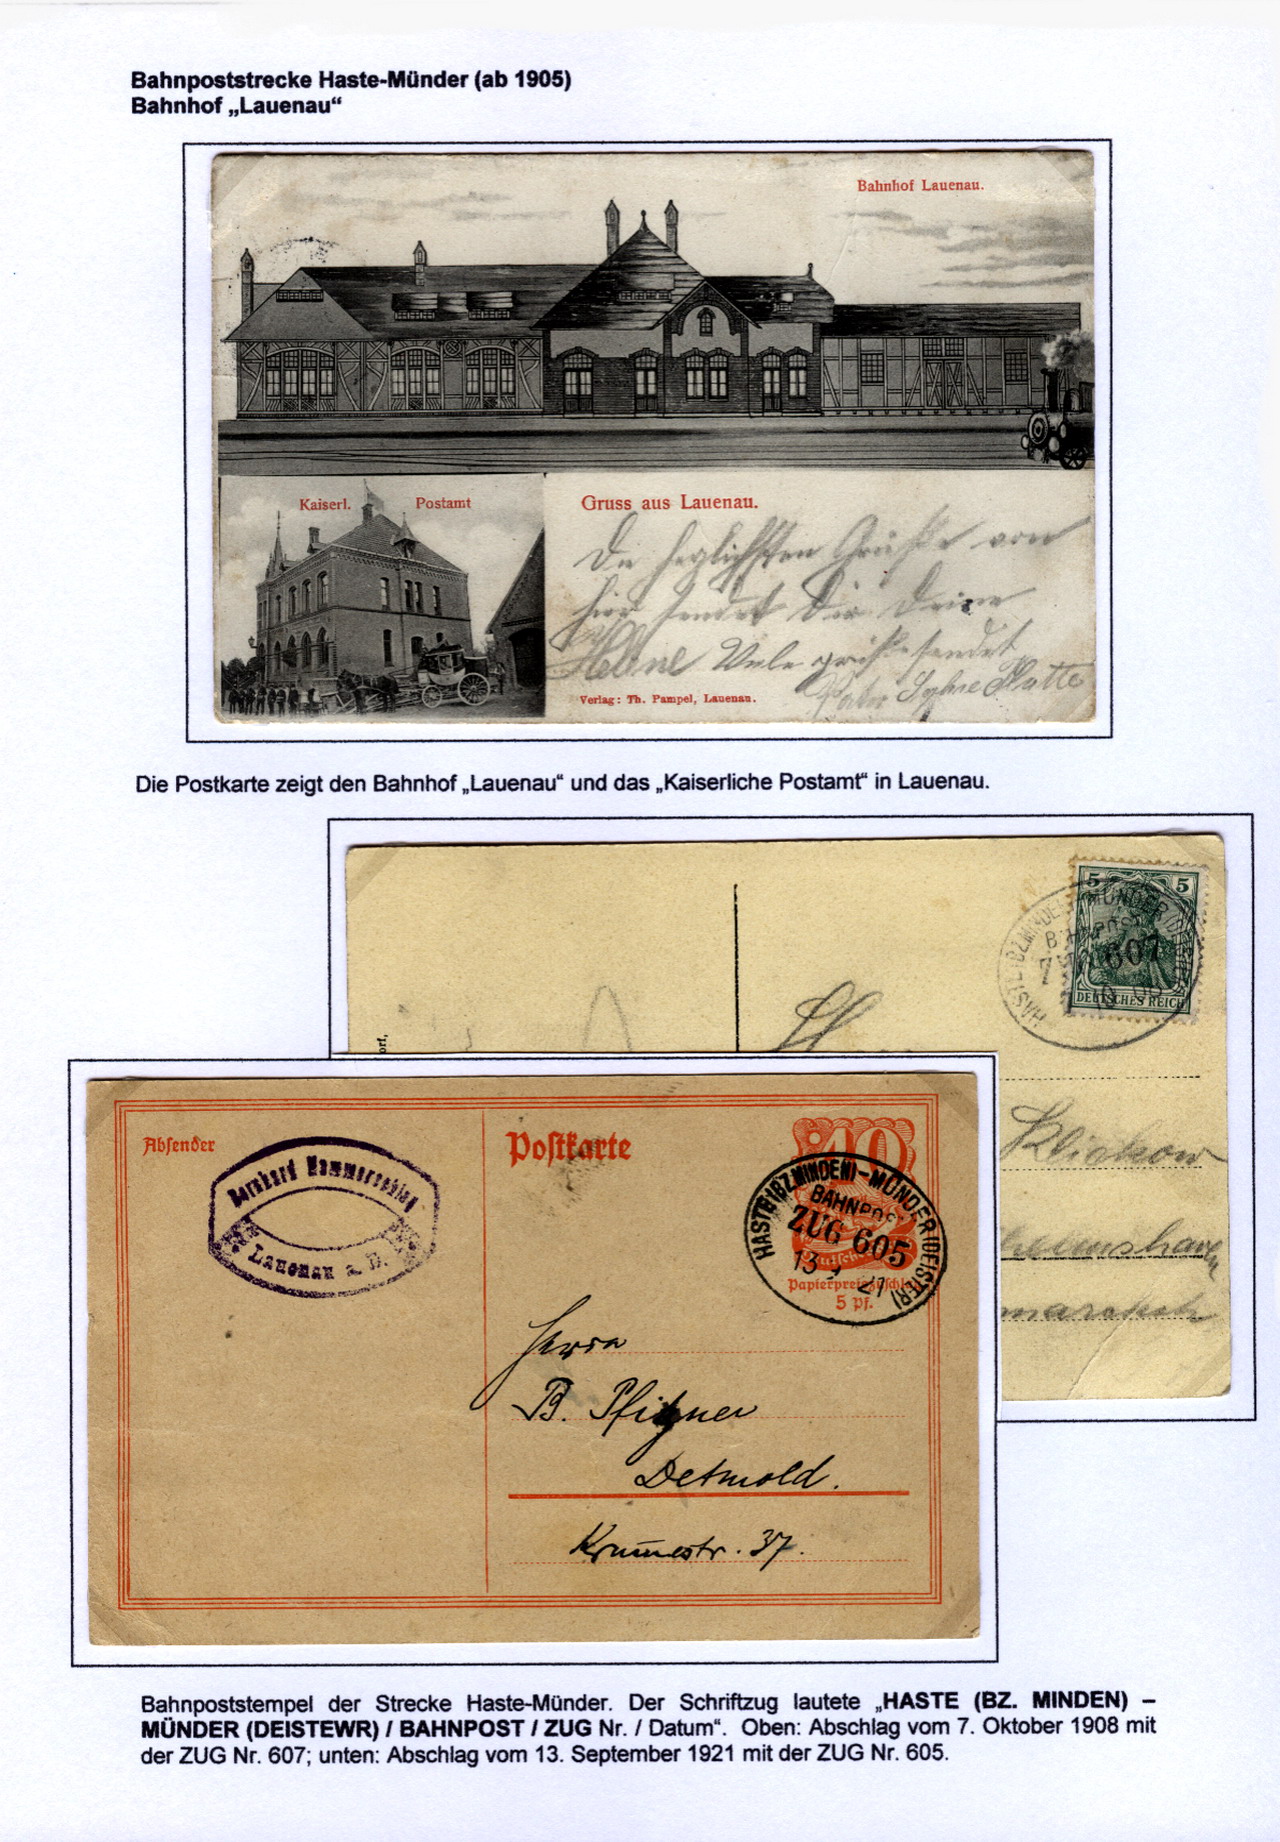 Bahnpoststrecke Haste-Münder (ab 1905)
Bahnhof „Lauenau“
Bahnhof Lauenau.
Kaiserl. Postamt
Gruss aus Lauenau.
Die herzlichsten Grüße von
hier sendet Dir Deine
Helene Viele grüße sendet
Verlag: Th. Pampel, Lauenau.
Die Postkarte zeigt den Bahnhof „Lauenau“ und das „Kaiserliche Postamt“ in Lauenau.
5 5
DEUTSCHES REICH
HASTE (BZ.MINDEN)-MÜNDER (DEISTER)
BAHNPOST
ZUG 607
7 10 08
ort,
Klickow
Absender
Bernhard Hammerschlag
Lauenau a. D.
Postkarte
40
HASTE (BZ.MINDEN)-MÜNDER (DEISTER)
BAHNPOST
ZUG 605
13 9 21
Papierpreiszuschlag
5 Pf.
Herrn
B. Pfitzner
Detmold.
Krumestr. 37.
Bahnpoststempel der Strecke Haste-Münder. Der Schriftzug lautete „HASTE (BZ. MINDEN) –
MÜNDER (DEISTEWR) / BAHNPOST / ZUG Nr. / Datum“. Oben: Abschlag vom 7. Oktober 1908 mit
der ZUG Nr. 607; unten: Abschlag vom 13. September 1921 mit der ZUG Nr. 605.